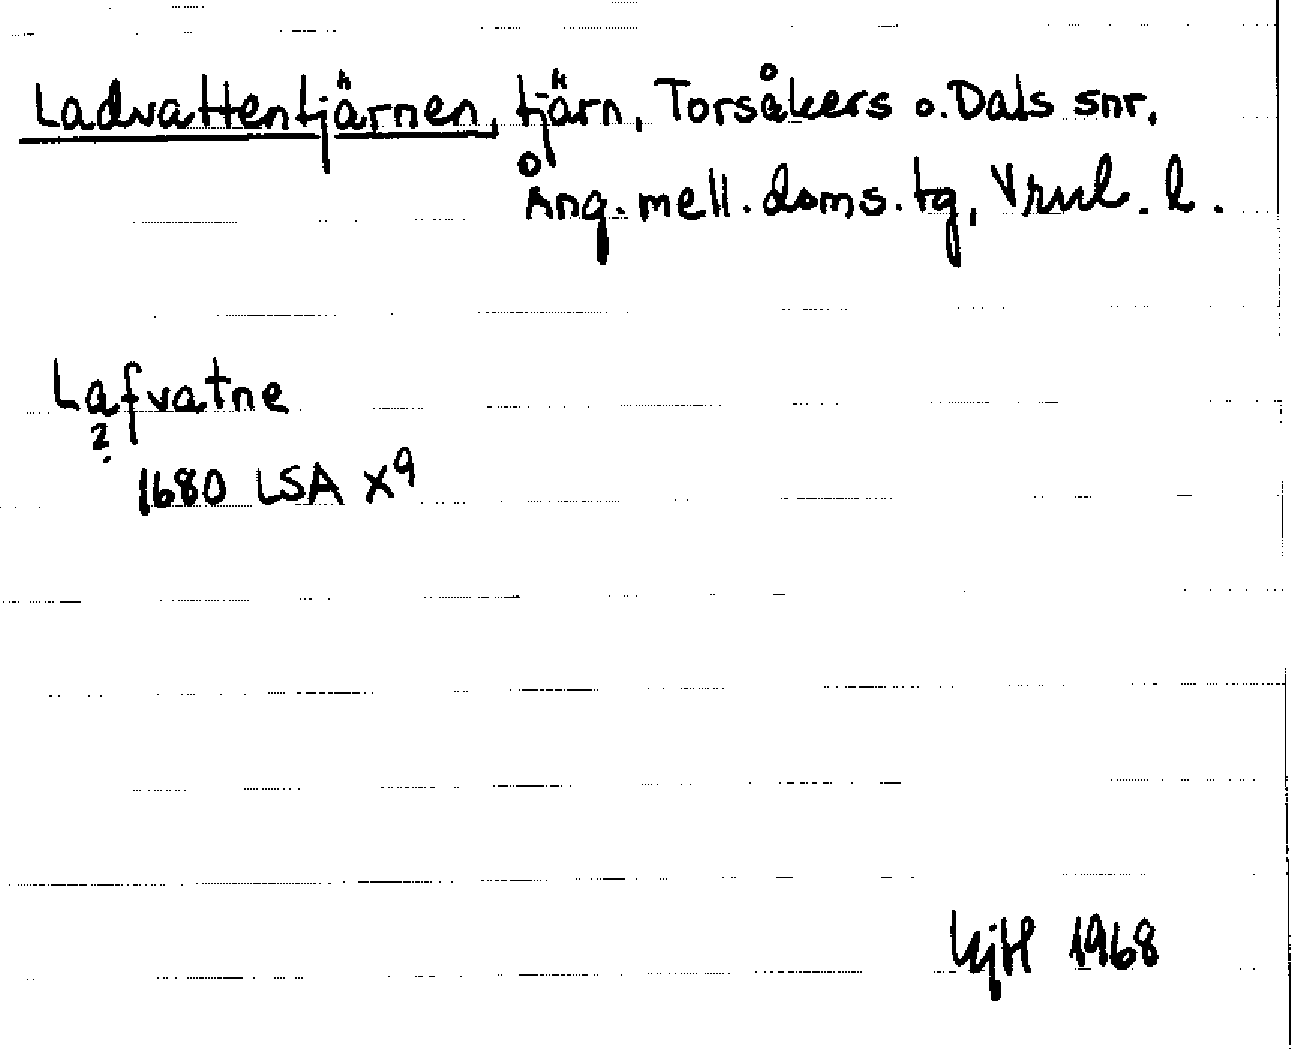 Ladvattentjärnen, tjärn, Torsåkers o. Dals snr.
Ång. mell. doms. tg, Vrnl. l.
Lafvatne
?
1680 LSA X9
KjH 1968